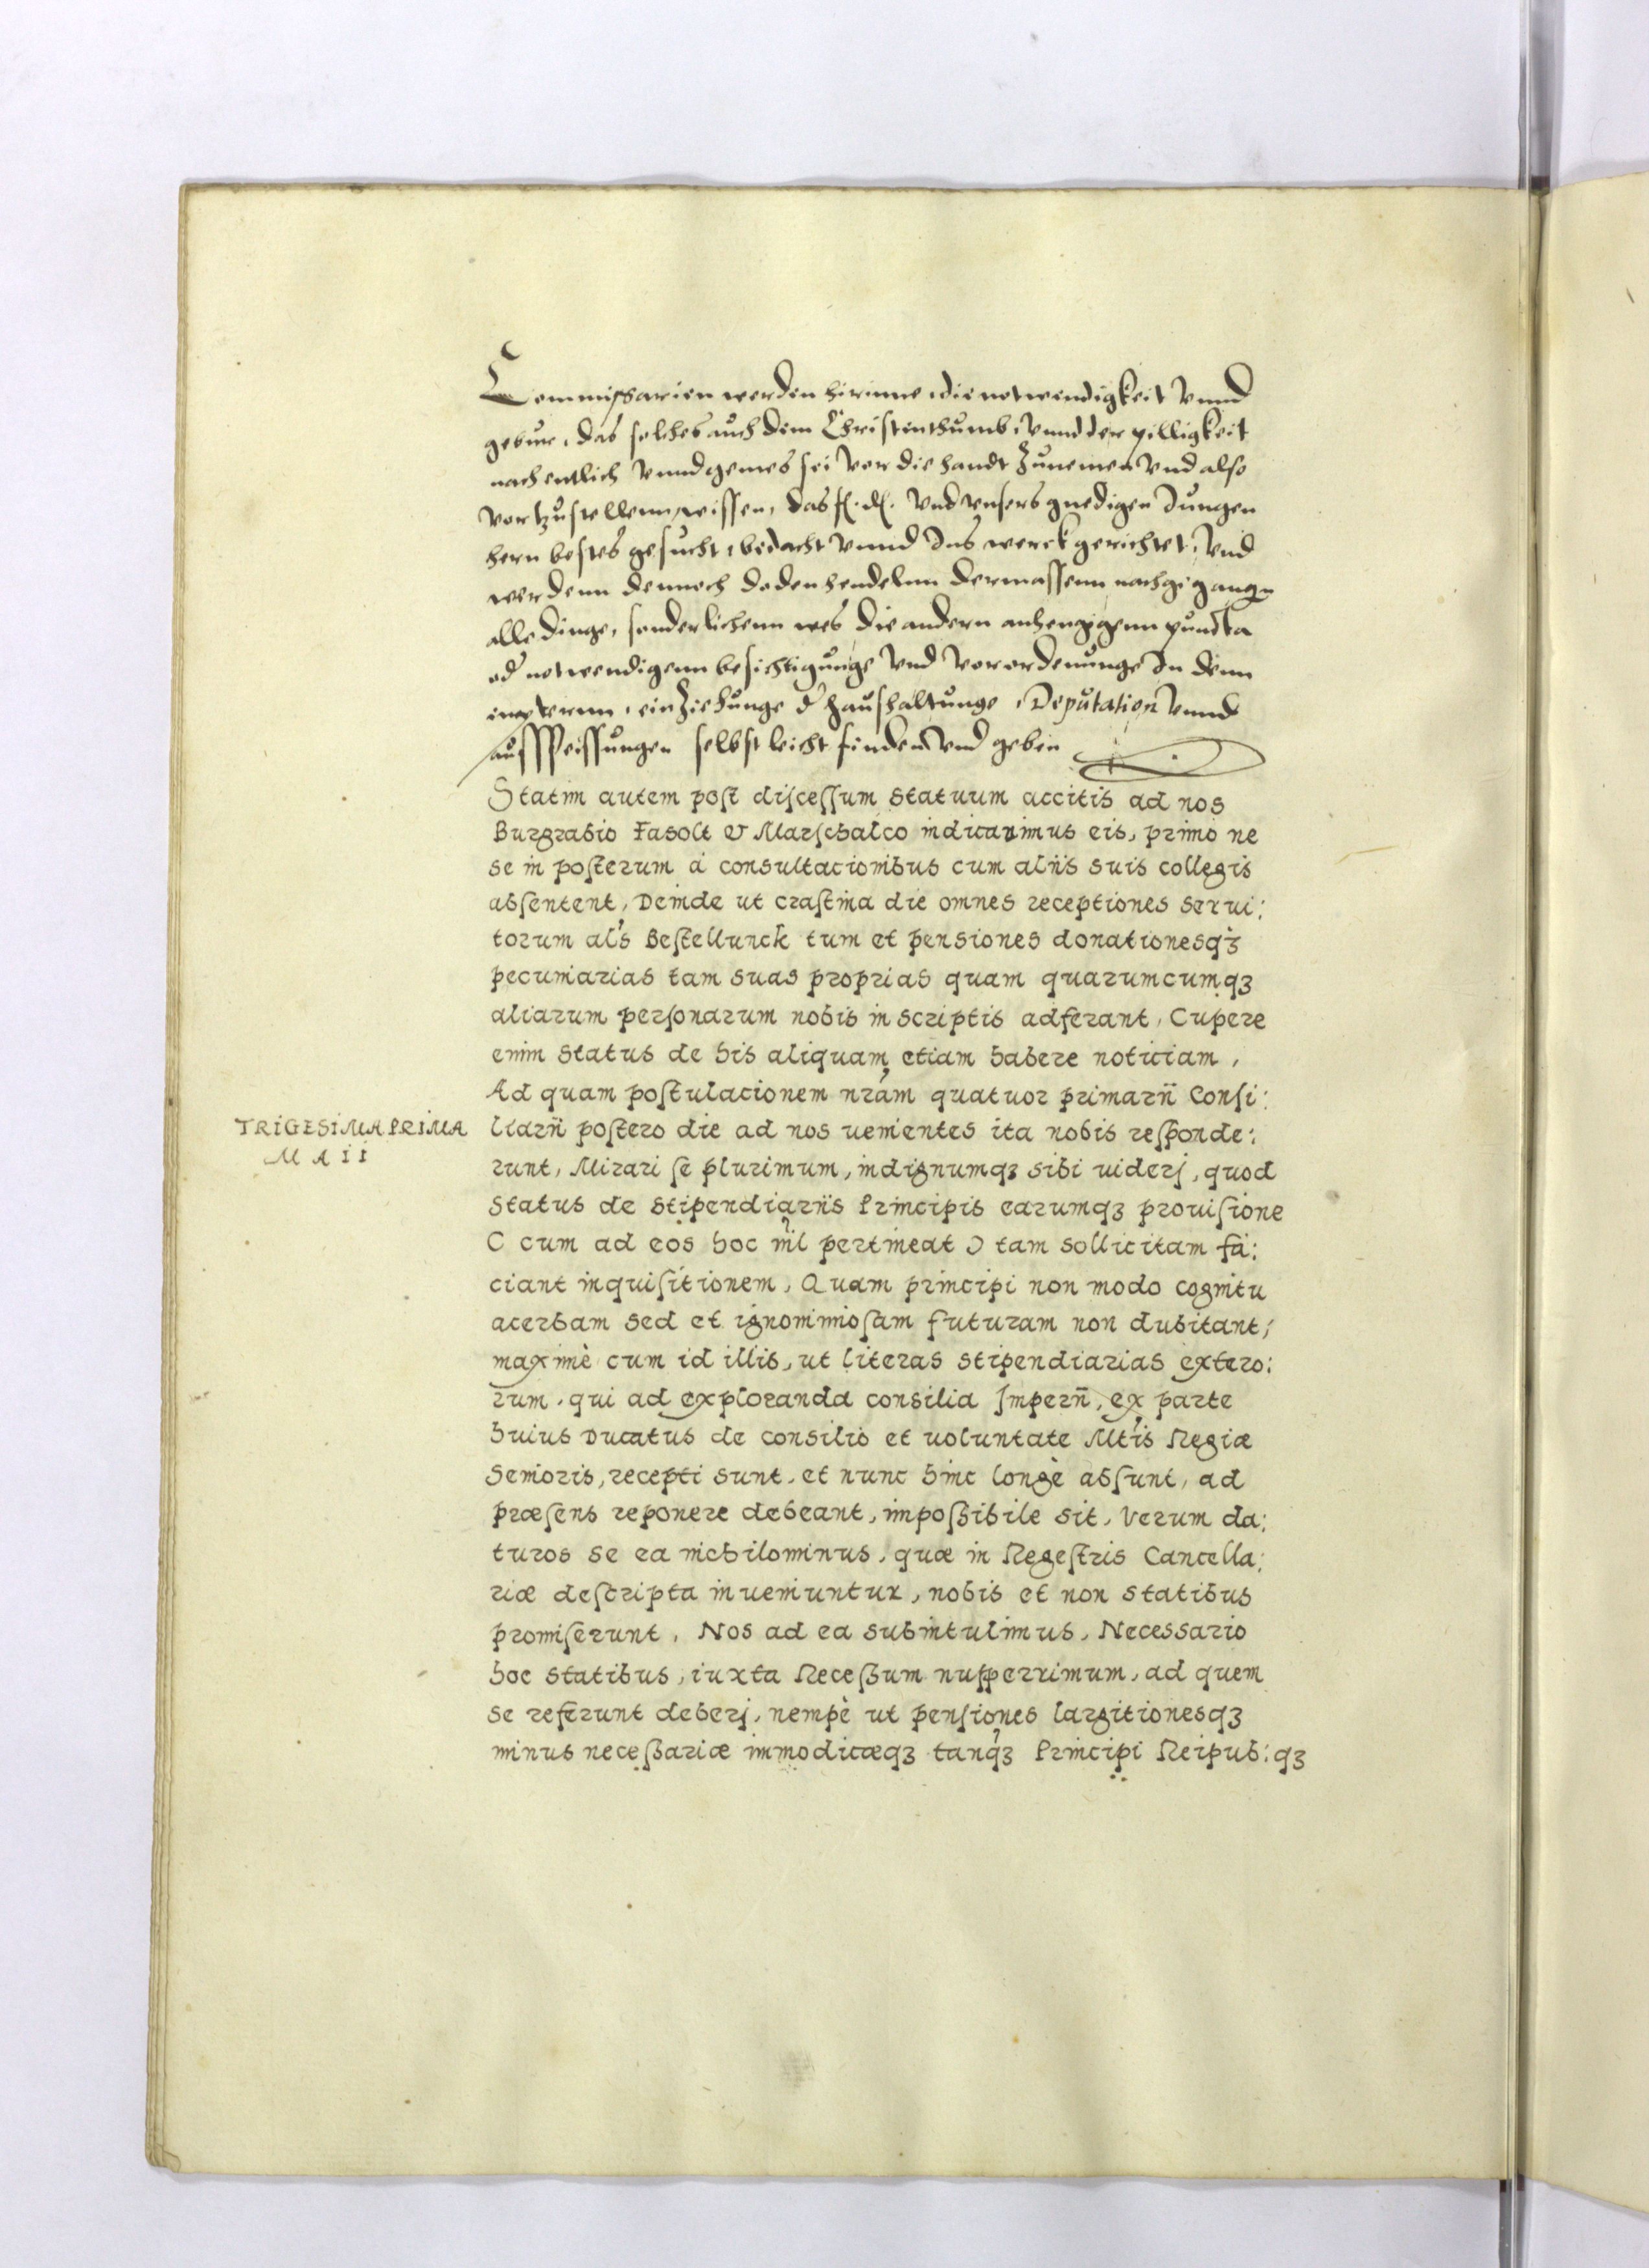 Commissarien werden hirinne, die notwendigkeit vnnd
gebure, das solches auch dem Christenthumb, vnnd der pilligkeit
nach entlich vnnd gemes sei vor die handt zunemen vnd also
vortzustellenn, wissen, das f. d. vnd vnsers gnedigen Jungen
hern bestes gesucht, bedacht vnnd Ins werck gerichtet, vnd
werdenn dennoch da den hendelnn dermassenn nachgegangen
alle dinge, sonderlichenn wes die andern anhengigenn puncta
od notwendigenn besichtigunge vnd vorordenunge In denn
empternn, einziehunge d haushaltunge, Deputation vnnd
ausspeissungen selbst leicht finden vnd geben
Statim autem post discessum statuum accitis ad nos
Burgrabio Fasolt & Marschalco indicauimus eis, primo ne
se in posterum à consultacionibus cum alijs suis collegis
absentent, Deinde ut crastina die omnes receptiones serui:
torum als Bestellunck tum et pensiones donationesqȝ
pecuniarias tam suas proprias quam quarumcumqȝ
aliarum personarum nobis in scriptis adferant, Cupere
enim status de his aliquam etiam habere noticiam,
Ad quam postulacionem nram quatuor primarij Consi:
TRIGESIMA PRIMA
MAII
liarij postero die ad nos uenientes ita nobis responde:
runt, Mirari se plurimum, indignumqȝ sibi uiderj, quod
status de stipendiarijs Principis earumqȝ prouisione
( cum ad eos hoc nil pertineat ) tam sollicitam fa:
ciant inquisitionem, Quam principi non modo cognitu
acerbam sed et ignominiosam futuram non dubitant,
maximè cum id illis, ut literas stipendiarias extero:
rum, qui ad exploranda consilia Imperij, ex parte
huius Ducatus de consilio et uoluntate Mtis Regiæ
Senioris, recepti sunt, et nunc hinc longè absunt, ad
præsens reponere debeant, impoßibile sit, Verum da:
turos se ea nichilominus, quæ in Regestris Cancella:
riæ descripta inueniuntur, nobis et non statibus
promiserunt, Nos ad ea subintulimus, Necessario
hoc statibus, iuxta Receßum nupperrimum, ad quem
se referunt deberj, nempè ut pensiones largitionesqȝ
minus neceßariæ immodicæqȝ tanqȝ Principi Reipub: qȝ